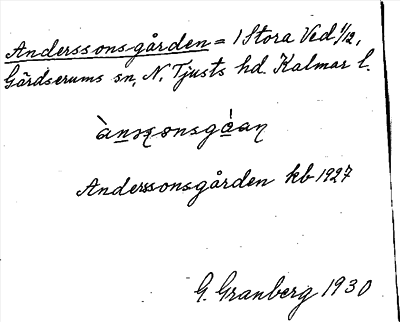 Anderssons-gården = 1 Stora Ved 1/12,
Gärdserums sn, N. Tjusts hd. Kalmar l.
Anderssonsgården kb 1927
G. Granberg 1930